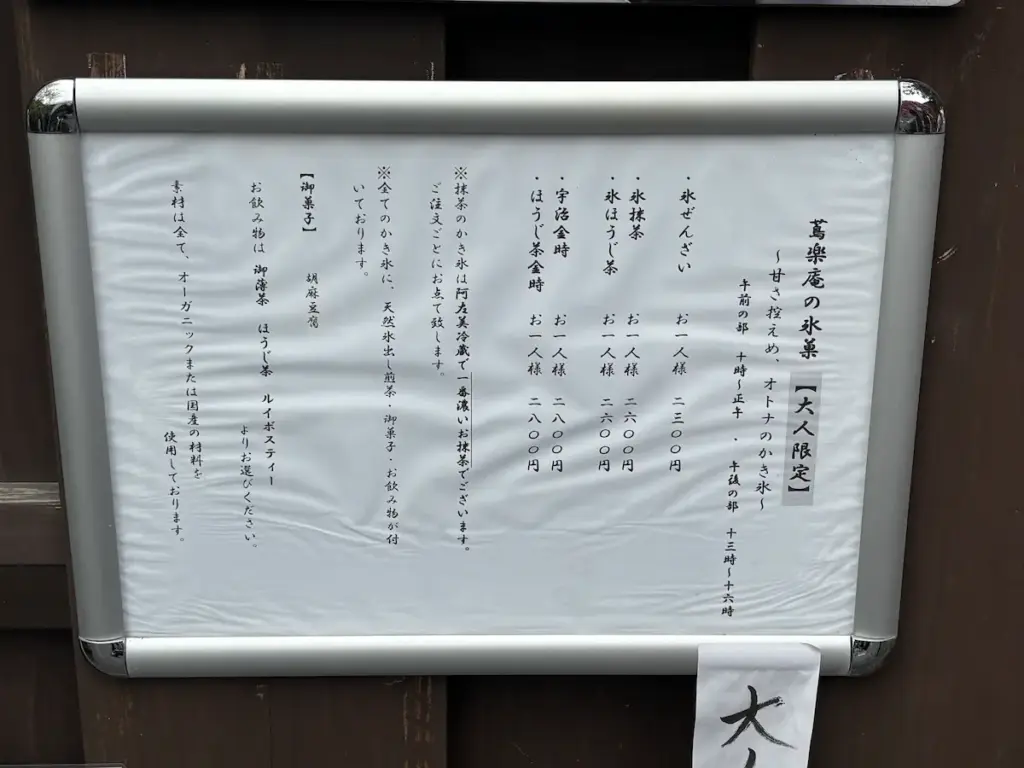 蔦楽庵の氷菓 【大人限定】
～甘さ控えめ、オトナのかき氷～
午前の部 十時～正午 ・ 午後の部 十三時～十六時
・氷ぜんざい お一人様 二三〇〇円
・氷抹茶 お一人様 二六〇〇円
・氷ほうじ茶 お一人様 二六〇〇円
・宇治金時 お一人様 二八〇〇円
・ほうじ茶金時 お一人様 二八〇〇円
※抹茶のかき氷は阿左美冷蔵で一番濃いお抹茶でございます。
ご注文ごとにお点て致します。
※全てのかき氷に、天然氷出し煎茶・御菓子・お飲み物が付
いております。
【御菓子】 胡麻豆腐
お飲み物は 御薄茶 ほうじ茶 ルイボスティー
よりお選びください。
素材は全て、オーガニックまたは国産の材料を
使用しております。
大人